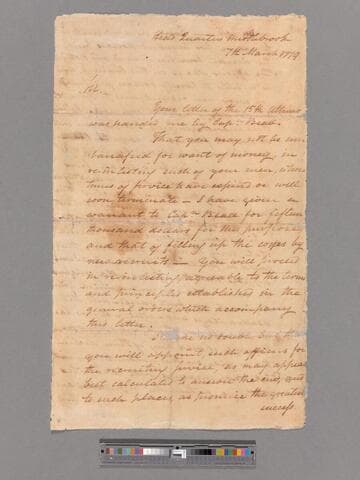 Head Quarters Middlebrook
7th March 1779
Sir,
Your letter of the 15th Ultimo
was handed me by Capt.
That you may not be
for want of money in
reinlisting such of your men, whose
times of service have expired or will
soon terminate — I have given a
warrant to Capt. for fifteen
thousand dollars for this purpose
and that of filling up the corps by
new recruits — You will proceed
in reinlisting agreeable to the terms
and principles established in the
general orders which accompany
this letter.
I have no doubt but that
you will appoint such officers for
the recruiting service, as may appear
best calculated to answer the end, and
to such places, as promise the greatest
success